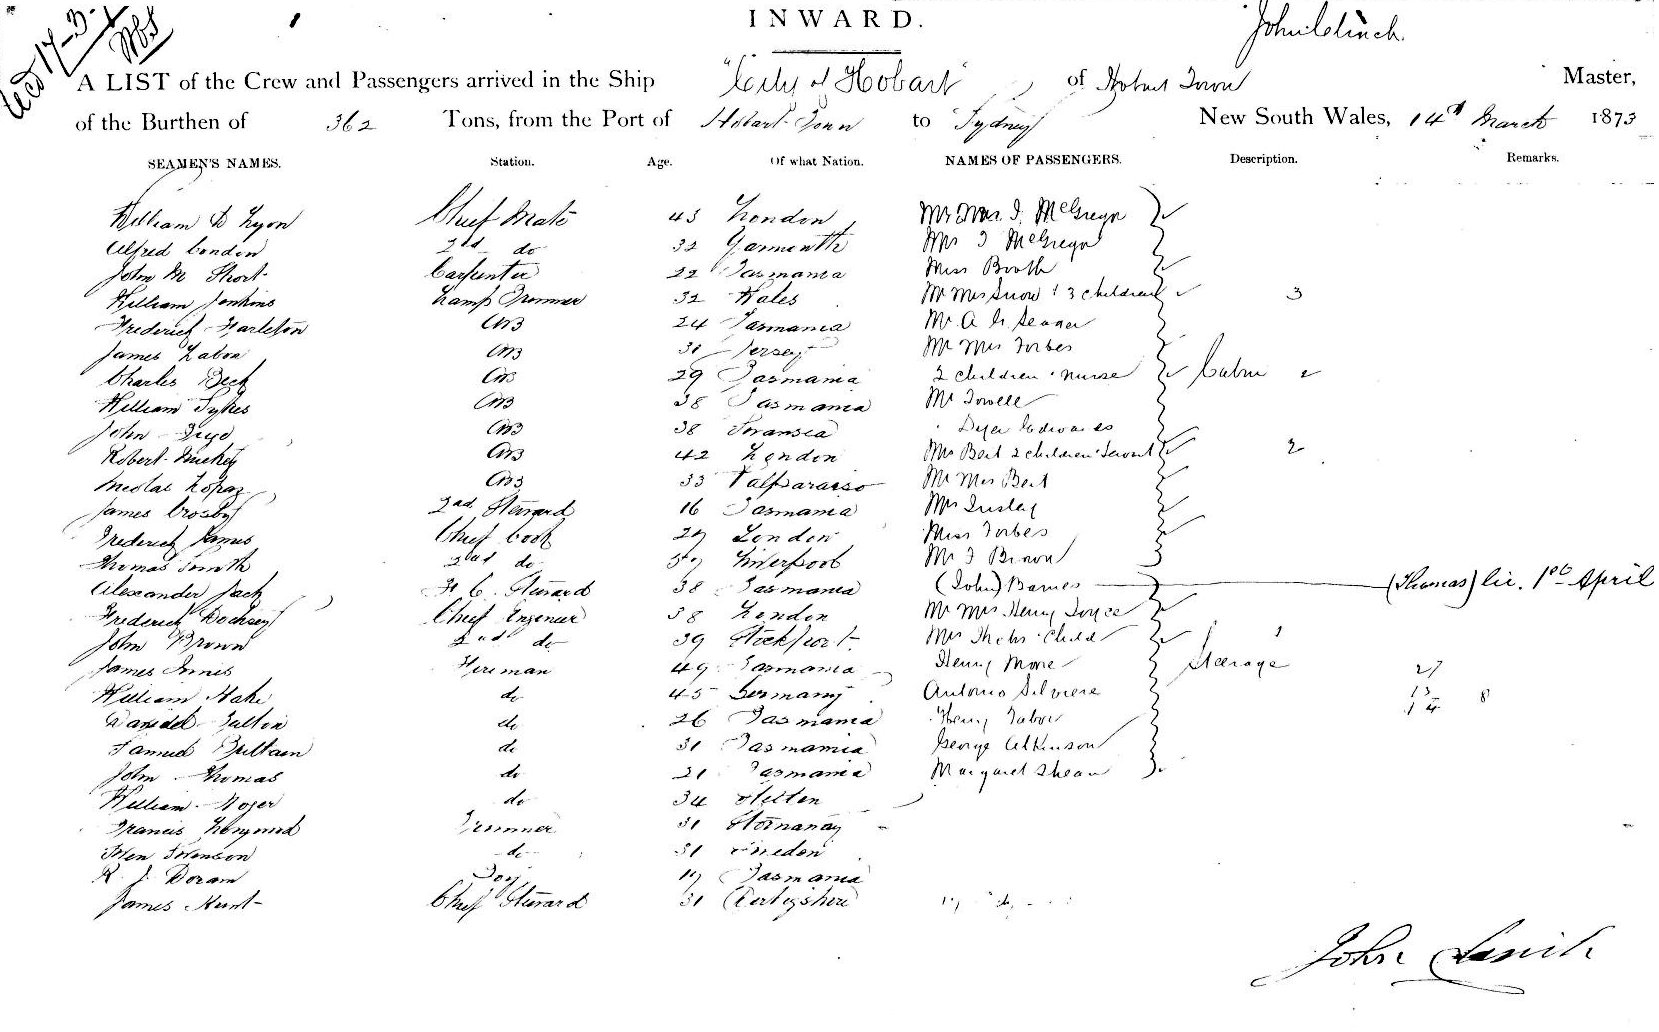 INWARD.
John Clinch.
Recd 17-3-
A LIST of the Crew and Passengers arrived in the Ship "City of Hobart" of Hobart Town Master,
of the Burthen of 362 Tons, from the Port of Hobart Town to Sydney New South Wales, 14th March 1873
SEAMEN'S NAMES. Station. Age. Of what Nation. NAMES OF PASSENGERS. Description. Remarks.
William D Lyon Chief Mate 43 London Mr Mrs J. McGregor
Alfred Condon 2nd do 32 Yarmouth Mrs J McGregor
John M Short Carpenter 22 Tasmania Miss Booth
William Jenkins Lamp Trimmer 32 Wales Mr Mrs Snow 3 children 3
Frederick Harleton AB 24 Tasmania Mr A
James AB 31 Jersey Mr Mrs Forbes
Charles Beck AB 29 Tasmania 2 children nurse Cabin 2
William Sykes AB 38 Tasmania Mr Towell
John AB 38 Swansea Dyer Edwards
Robert AB 42 London Mrs Bert 2 children Servant 2
Nicolas Lopaz AB 33 Valparaiso Mr Mrs Bert
James Crosby 2nd Steward 16 Tasmania Mrs
Frederick James Chief Cook 29 London Miss Forbes
Thomas Smith 2nd do 57 Liverpool Mr J Brown
Alexander Jack F C. Steward 38 Tasmania (John) Barnes (Thomas) lic. 1st April
Frederick Chief Engineer 38 London Mr Mrs Henry Joyce
John Brown 2nd do 39 Stockport Mrs Child 1
James Innis Fireman 49 Tasmania Henry More Steerage 27
William Hake do 45 Germany Antonio Silviere 13 8
Dalton do 26 Tasmania Henry Tabor 14
Samuel Brittain do 31 Tasmania George Atkinson
John Thomas do 21 Tasmania Margaret Shean
William do 34
Francis Trimmer 31 Stornaway
Sven Swenson do 31 Sweden
R J. Doram Boy 17 Tasmania
James Hunt Chief Steward 31 Derbyshire
John Clinch